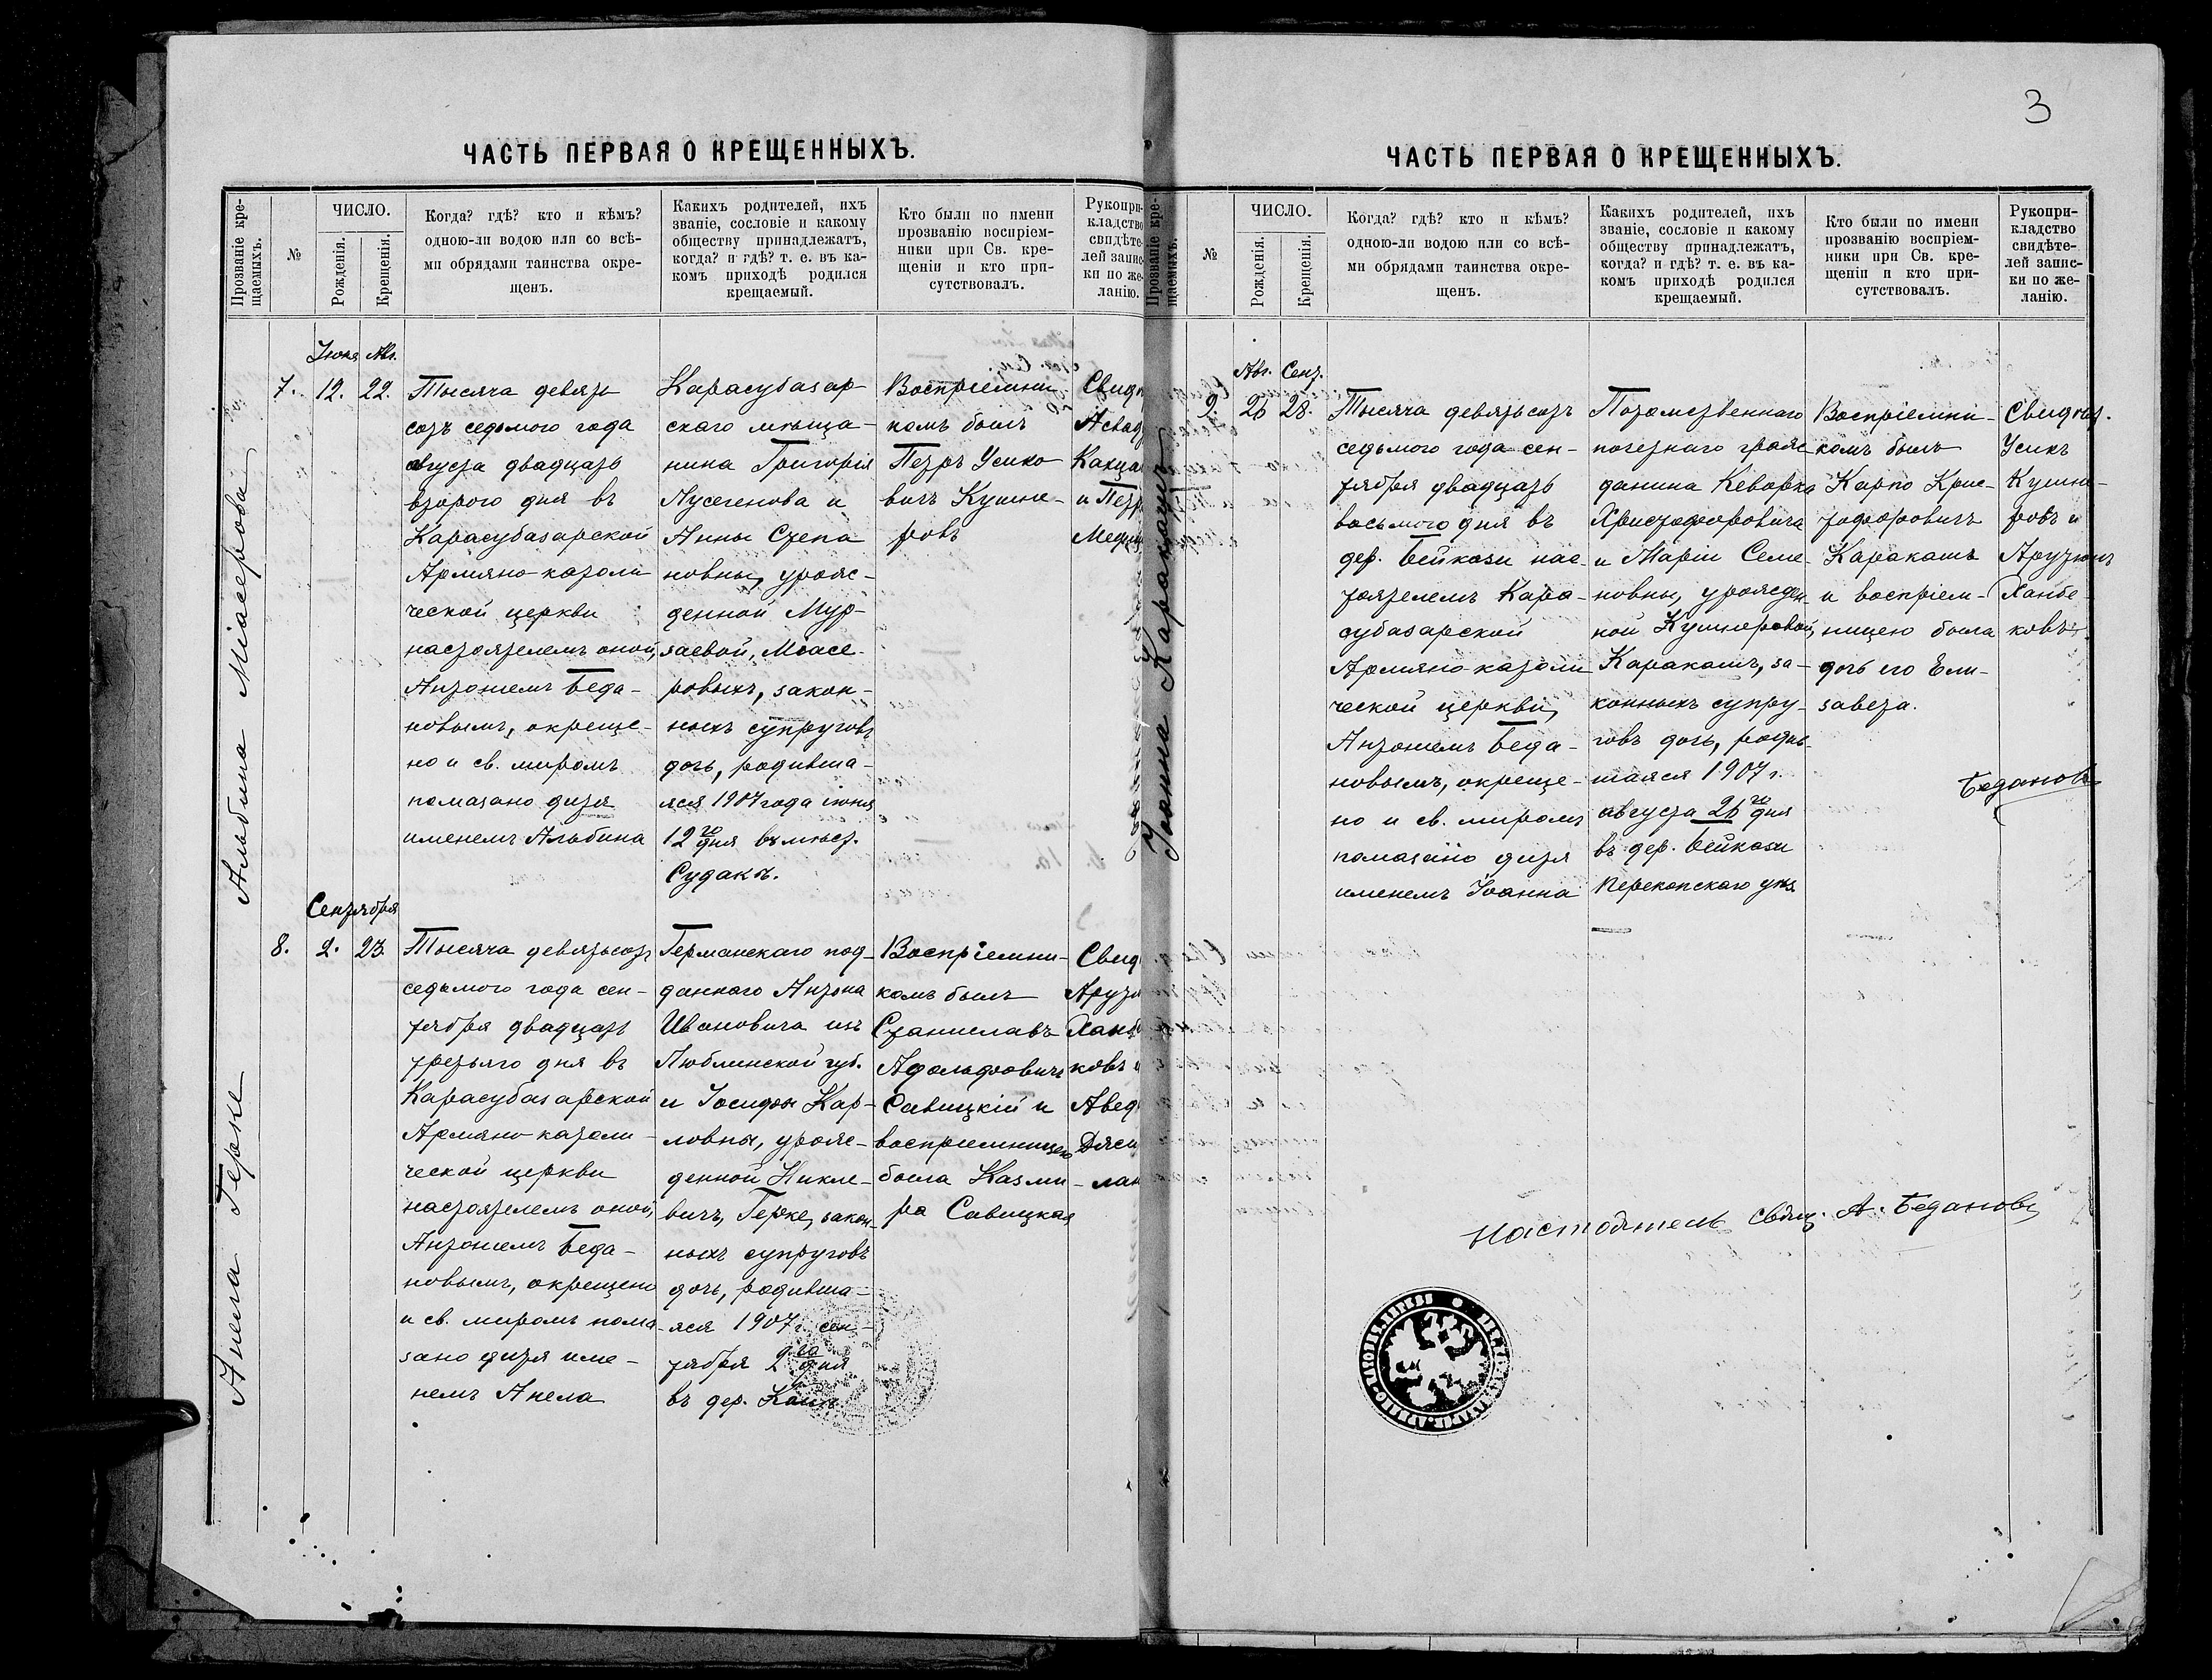 3
ЧАСТЬ ПЕРВАЯ О КРЕЩЕННЫХЪ.
Прозваніе кре-
щаемыхъ.
№
ЧИСЛО.
Рожденія.
Крещенія.
Когда? гдѣ? кто и кѣмъ?
одною-ли водою или со всѣ-
ми обрядами таинства окре-
щенъ.
Какихъ родителей, ихъ
званіе, сословіе и какому
обществу принадлежатъ,
когда? и гдѣ? т. е. въ ка-
комъ приходѣ родился
крещаемый.
Кто были по имени
прозванію воспріем-
ники при Св. кре-
щеніи и кто при-
сутствовалъ.
Рукопри-
кладство
свидѣте-
лей запис-
ки по же-
ланію.
Альбина Міасерова
Іюня Авг.
7. 12. 22.
Тысяча девять
сотъ седьмого года
августа двадцать
второго дня въ
Карасубазарской
Армяно-католи
ческой церкви
настоятелемъ оной,
Антоніемъ Беда-
новымъ, окреще-
но и св. миромъ
помазано дитя
именемъ Альбина
Карасубазар-
скаго мѣща-
нина Григорія
Лусегенова и
Анны Степа
новны, урож-
денной Мур-
заевой, Міасе-
ровыхъ, закон-
ныхъ супруговъ
дочь, родивша-
яся 1907 года іюня
12го дня въ мѣст.
Судакъ.
Воспріемни-
комъ былъ
Петръ Усико
вичъ Кушне-
ровъ
Свидѣ
Асвад
Какца
и Петр
Медц
Анела Герке
Сентября
8. 2. 23.
Тысяча девятьсотъ
седьмого года сен-
тября двадцать
третьяго дня въ
Карасубазарской
Армяно-католи-
ческой церкви
настоятелемъ оной,
Антоніемъ Беда-
новымъ, окрещено
и св. миромъ пома-
зано дитя име-
немъ Анела
Германскаго под-
даннаго Антона
Ивановича изъ
Люблинской губ.
и Іосифы Кар-
ловны, урож-
денной Никле-
вичъ, Герке, закон-
ныхъ супруговъ
дочь, родивша-
яся 1907 г. сен-
тября 2го дня
въ дер.
Воспріемни-
комъ былъ
Станиславъ
Адольфовичъ
Савицкій и
воспріемницею
была Казми-
ра Савицкая
Свид
Арутю
Ханбе
ковъ и
Авед
Джси
лан
ЧАСТЬ ПЕРВАЯ О КРЕЩЕННЫХЪ.
Прозваніе кре-
щаемыхъ.
№
ЧИСЛО.
Рожденія.
Крещенія.
Когда? гдѣ? кто и кѣмъ?
одною-ли водою или со всѣ-
ми обрядами таинства окре-
щенъ.
Какихъ родителей, ихъ
званіе, сословіе и какому
обществу принадлежатъ,
когда? и гдѣ? т. е. въ ка-
комъ приходѣ родился
крещаемый.
Кто были по имени
прозванію воспріем-
ники при Св. кре-
щеніи и кто при-
сутствовалъ.
Рукопри-
кладство
свидѣте-
лей запис-
ки по же-
ланію.
Іоанна Каракашъ
Авг. Сент.
9. 26 28.
Тысяча девятьсотъ
седьмого года сен-
тября двадцать
восьмого дня въ
дер. Бейкази нас-
тоятелемъ Кара-
субазарской
Армяно-католи
ческой церкви,
Антоніемъ Беда-
новымъ, окреще-
но и св. миромъ
помазано дитя
именемъ Іоанна
Потомственнаго
почетнаго граж
данина Кеворка
Христофоровича
и Маріи Семе-
новны, урожден-
ной Кушнеровой,
Каракашъ, за-
конныхъ супру-
говъ дочь, родив-
шаяся 1907 г.
августа 26го дня
въ дер. Бейкази
Перекопскаго уѣз.
Воспріемни-
комъ былъ
Карпо Крис-
тофоровичъ
Каракашъ
и воспріем-
ницею была
дочь его Ели-
завета.
Свидѣт.
Усикъ
Кушне-
ровъ и
Арутюнъ
Ханбе-
ковъ.
Бедановъ
Настоятель свящ. А. Бедановъ